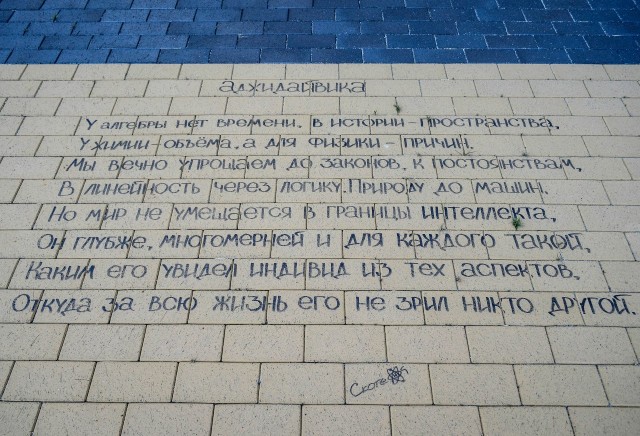 аджидайвика
У алгебры нет времени. в истории - пространства,
У химии - объёма, а для физики - причин.
Мы вечно упрощаем до законов, к постоянствам,
В линейность через логику. Природу до машин.
Но мир не умещается в границы интеллекта,
Он глубже, многомерней и для каждого такой,
Каким его увидел индивид из тех аспектов,
Откуда за всю жизнь его не зрил никто другой.